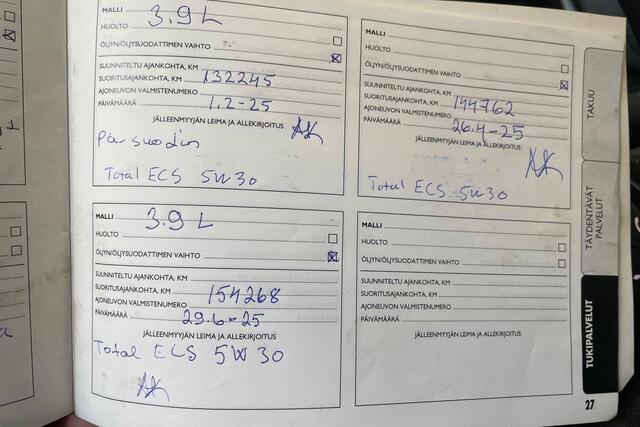 MALLI 3.9 L
HUOLTO
ÖLJYN/ÖLJYSUODATTIMEN VAIHTO
SUUNNITELTU AJANKOHTA, KM
SUORITUSAJANKOHTA, KM 132245
AJONEUVON VALMISTENUMERO
PÄIVÄMÄÄRÄ 1.2-25
JÄLLEENMYYJÄN LEIMA JA ALLEKIRJOITUS
Total ECS 5W30
MALLI
HUOLTO
ÖLJYN/ÖLJYSUODATTIMEN VAIHTO
SUUNNITELTU AJANKOHTA, KM
SUORITUSAJANKOHTA, KM 144762
AJONEUVON VALMISTENUMERO
PÄIVÄMÄÄRÄ 26.4-25
JÄLLEENMYYJÄN LEIMA JA ALLEKIRJOITUS
Total ECS 5W30
MALLI 3.9 L
HUOLTO
ÖLJYN/ÖLJYSUODATTIMEN VAIHTO
SUUNNITELTU AJANKOHTA, KM
SUORITUSAJANKOHTA, KM 154268
AJONEUVON VALMISTENUMERO
PÄIVÄMÄÄRÄ 29.6-25
JÄLLEENMYYJÄN LEIMA JA ALLEKIRJOITUS
Total ECS 5W30
MALLI
HUOLTO
ÖLJYN/ÖLJYSUODATTIMEN VAIHTO
SUUNNITELTU AJANKOHTA, KM
SUORITUSAJANKOHTA, KM
AJONEUVON VALMISTENUMERO
PÄIVÄMÄÄRÄ
JÄLLEENMYYJÄN LEIMA JA ALLEKIRJOITUS
TAKUU
TÄYDENTÄVÄT
PALVELUT
TUKIPALVELUT
27